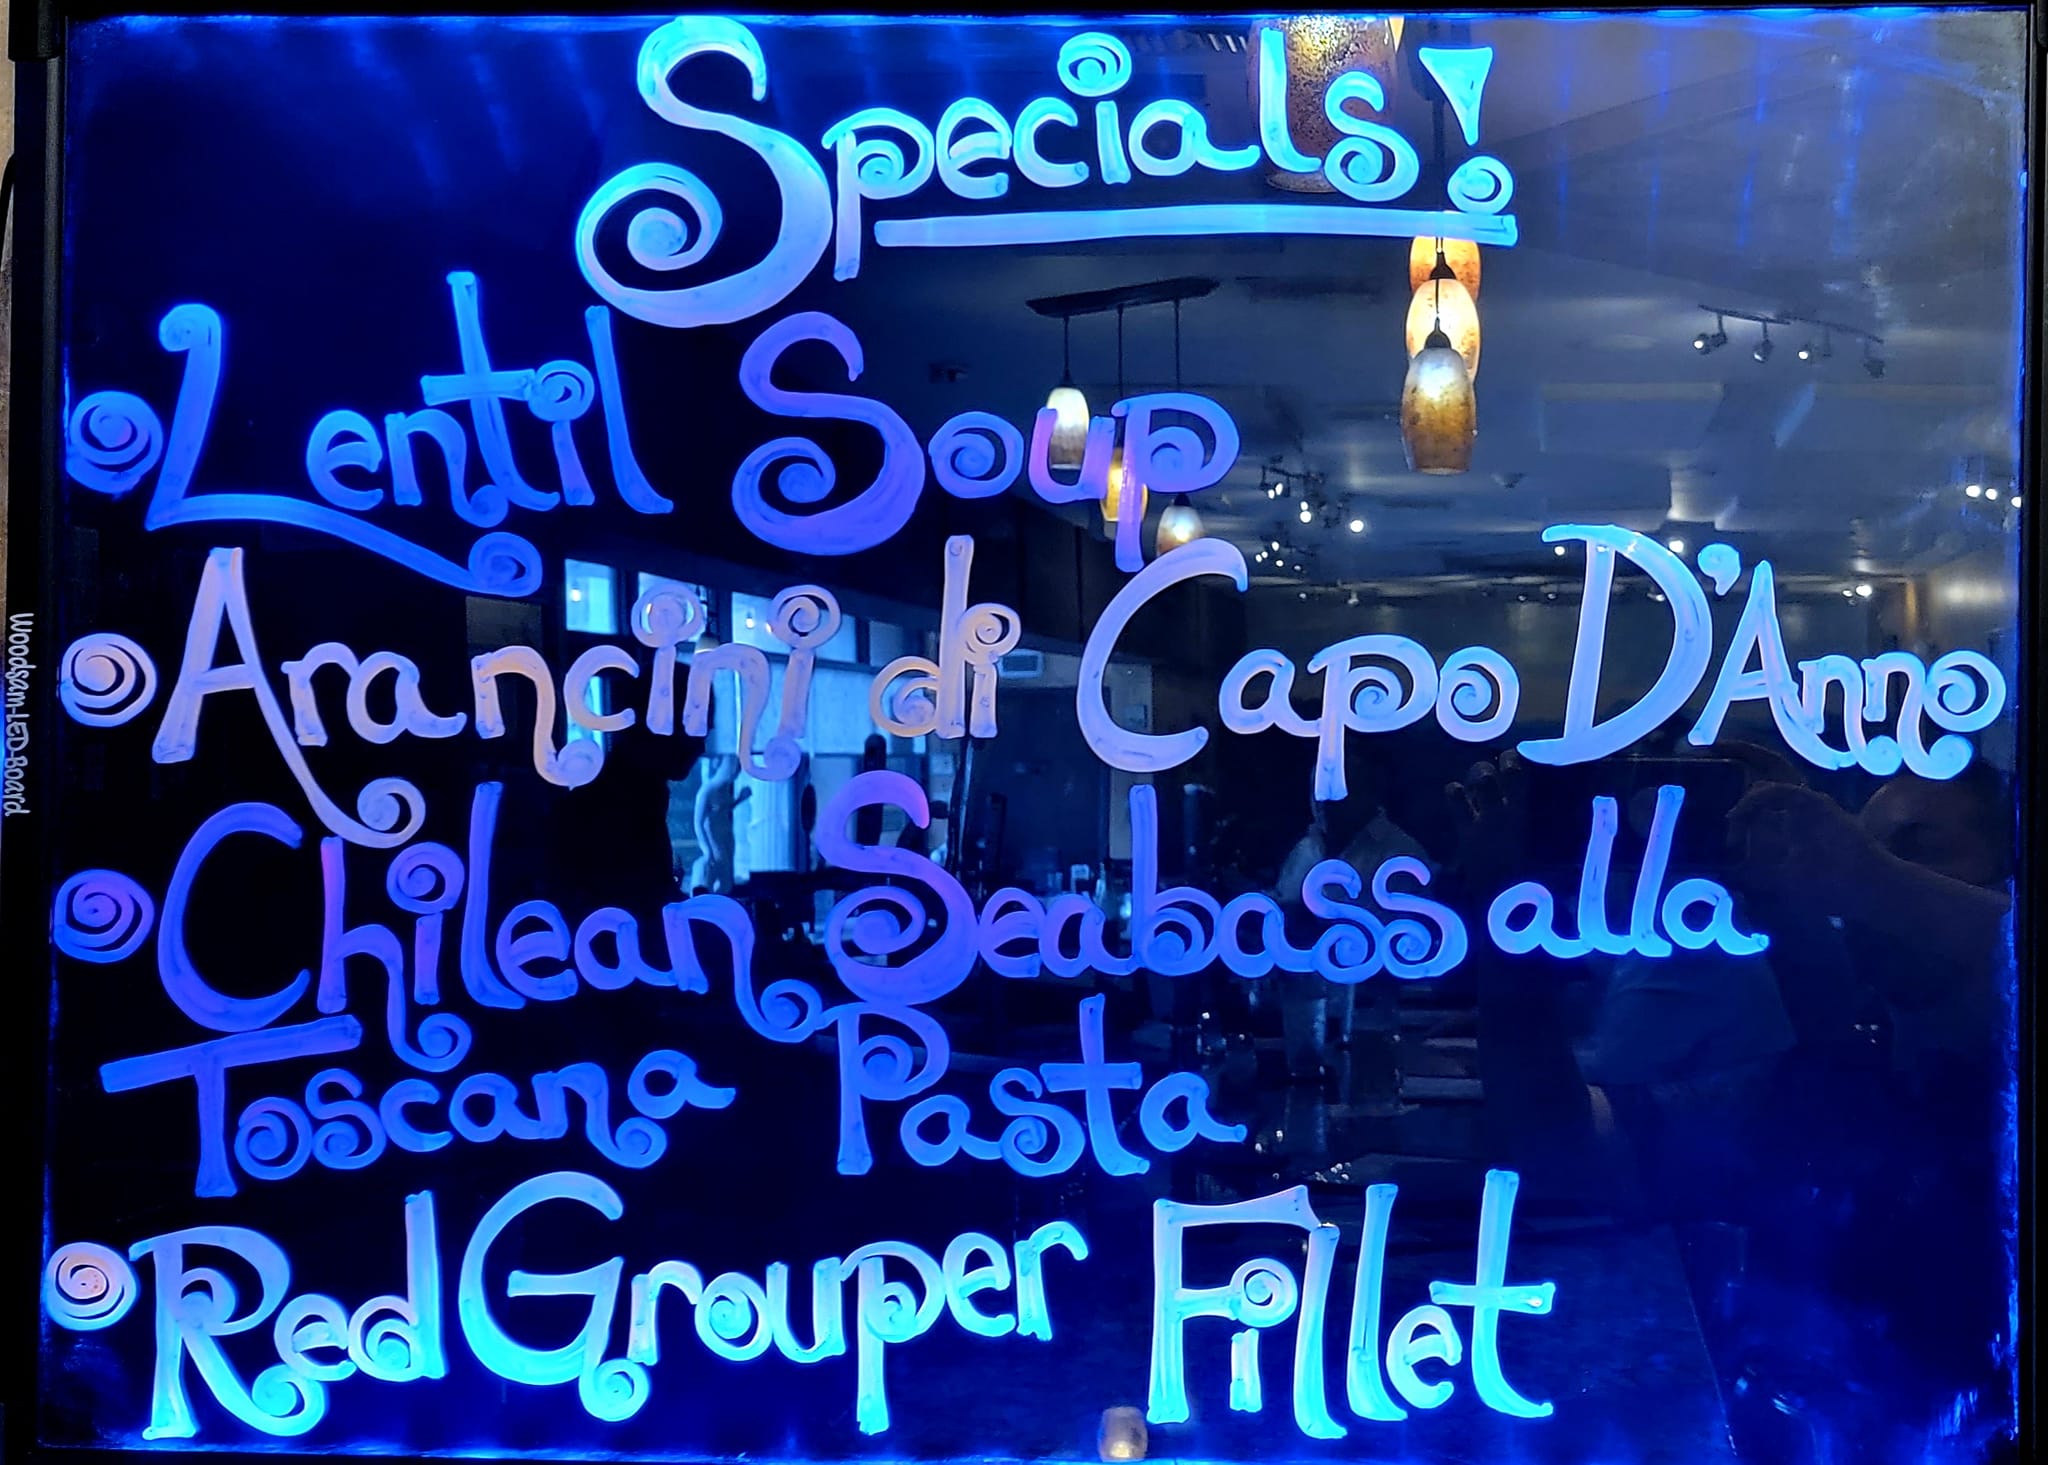 Specials!
Lentil Soup
Arancini di Capo D'Anno
Chilean Seabass alla
Toscana Pasta
Red Grouper Fillet
Woodsam LED Board